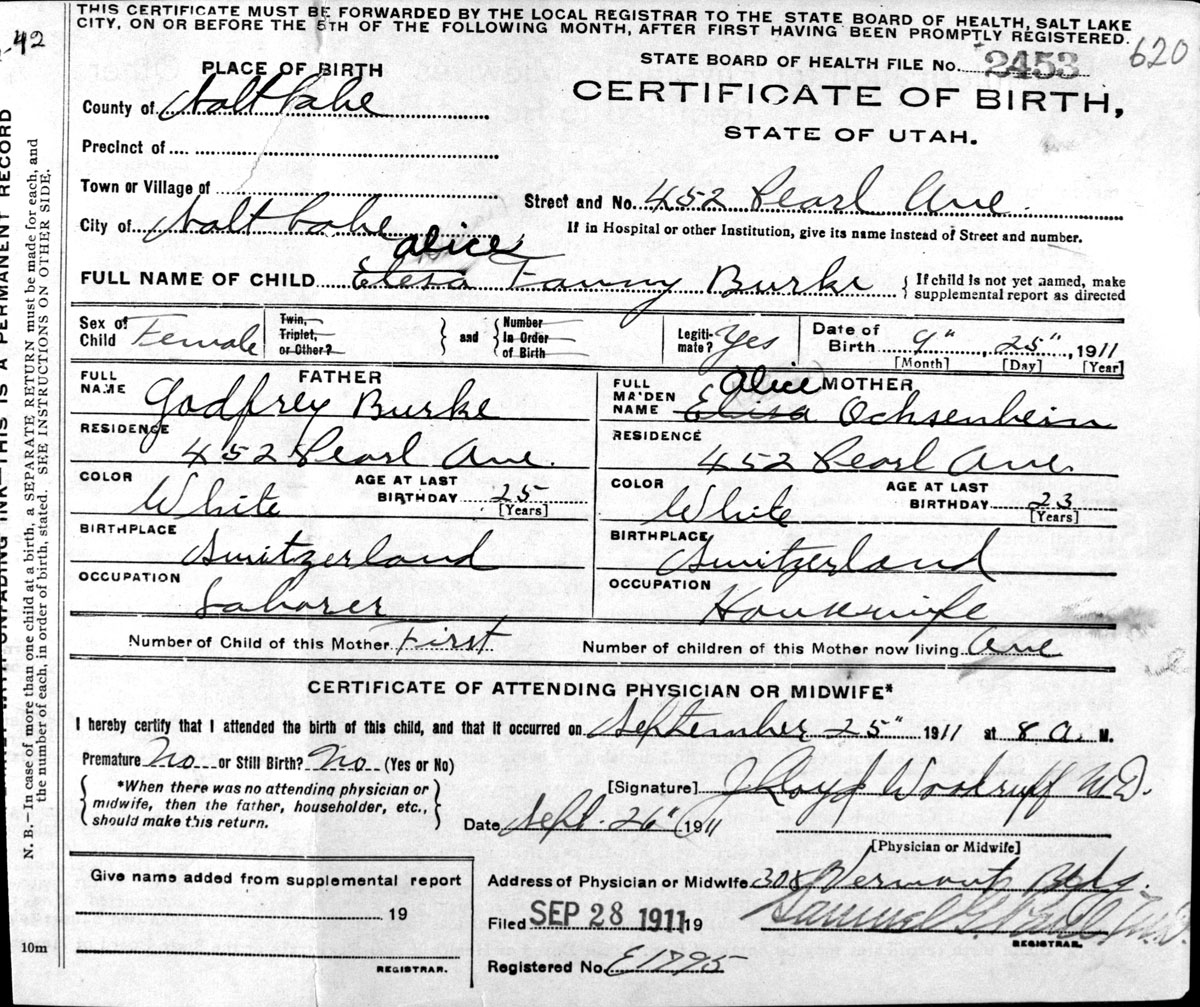 THIS CERTIFICATE MUST BE FORWARDED BY THE LOCAL REGISTRAR TO THE STATE BOARD OF HEALTH, SALT LAKE
CITY, ON OR BEFORE THE 5TH OF THE FOLLOWING MONTH, AFTER FIRST HAVING BEEN PROMPTLY REGISTERED.
-42
620
STATE BOARD OF HEALTH FILE No. 2453
CERTIFICATE OF BIRTH,
STATE OF UTAH.
PLACE OF BIRTH
County of Salt Lake
Precinct of
Town or Village of
Street and No. 452 Pearl Ave.
City of Salt Lake
If in Hospital or other Institution, give its name instead of Street and number.
Alice
FULL NAME OF CHILD Elesa Fanny Burke
If child is not yet named, make
supplemental report as directed
Sex of Child Female
Twin, Triplet, or Other?
and
Number In Order of Birth
Legitimate? Yes
Date of Birth 9" 25", 1911
[Month] [Day] [Year]
FATHER
FULL NAME Godfrey Burke
RESIDENCE 452 Pearl Ave.
COLOR White
AGE AT LAST BIRTHDAY 25 [Years]
BIRTHPLACE Switzerland
OCCUPATION Laborer
MOTHER
Alice
FULL MAIDEN NAME Elisa Ochsenbein
RESIDENCE 452 Pearl Ave.
COLOR White
AGE AT LAST BIRTHDAY 23 [Years]
BIRTHPLACE Switzerland
OCCUPATION Housewife
Number of Child of this Mother First
Number of children of this Mother now living One
CERTIFICATE OF ATTENDING PHYSICIAN OR MIDWIFE*
I hereby certify that I attended the birth of this child, and that it occurred on September 25" 1911 at 8 a. M.
Premature No or Still Birth? No (Yes or No)
*When there was no attending physician or
midwife, then the father, householder, etc.,
should make this return.
[Signature] J Lloyd Woodruff M.D.
Date Sept. 26" 1911
[Physician or Midwife]
Give name added from supplemental report
19
REGISTRAR.
Address of Physician or Midwife 308 Vermont Bldg.
Filed SEP 28 1911 19
Samuel G. Paul, M.D.
REGISTRAR.
Registered No. E1795
10m
THIS IS A PERMANENT RECORD
N. B.—In case of more than one child at a birth, a SEPARATE RETURN must be made for each, and
the number of each, in order of birth, stated. SEE INSTRUCTIONS ON OTHER SIDE.